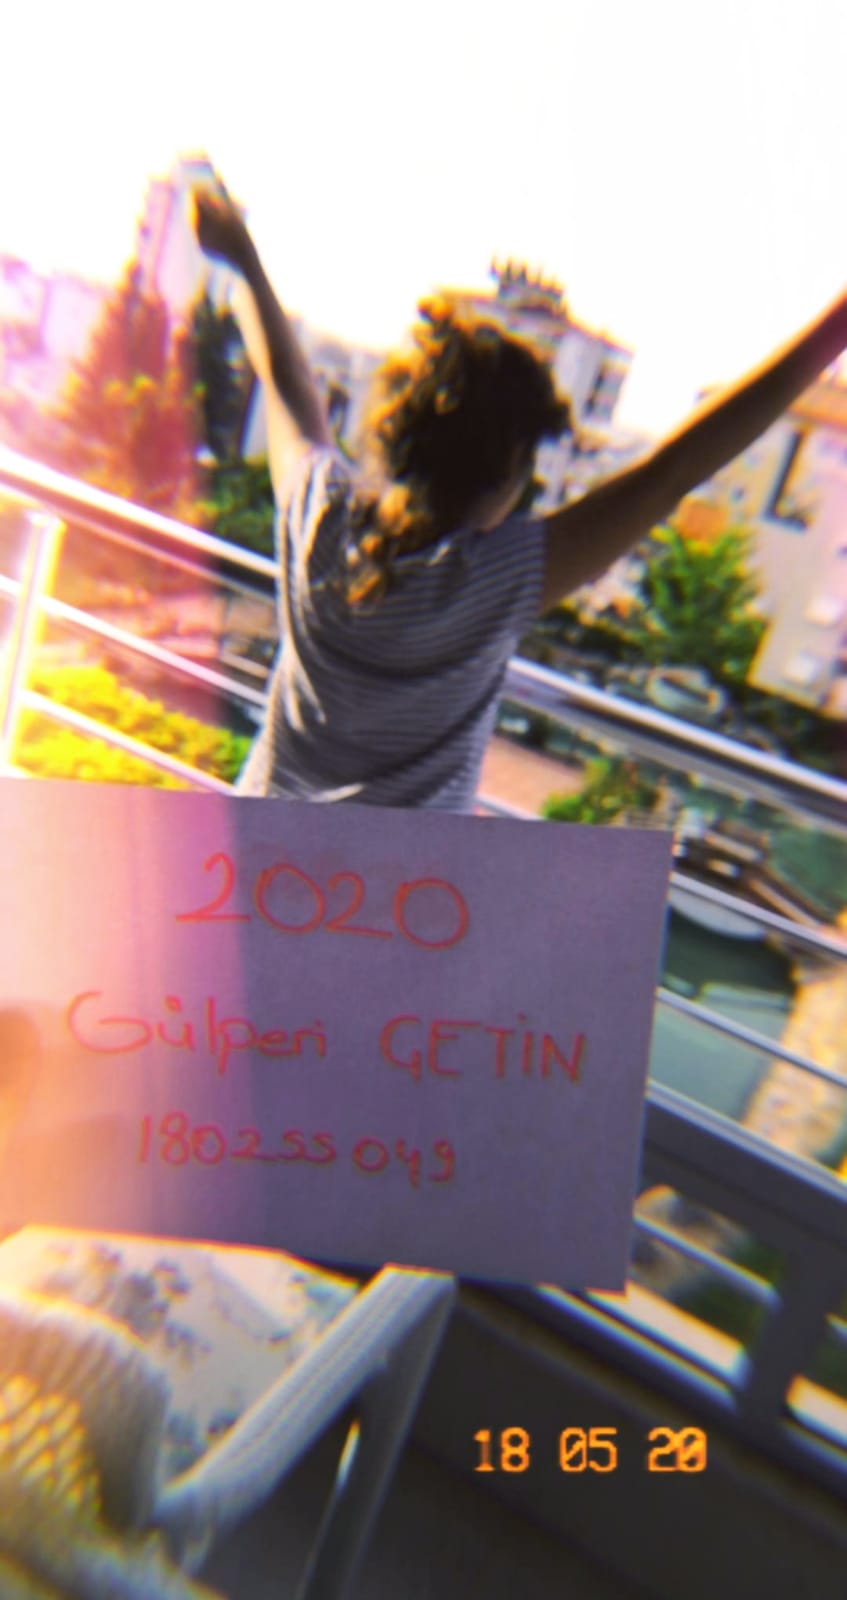 2020
Gülperi ÇETİN
180255049
18 05 20